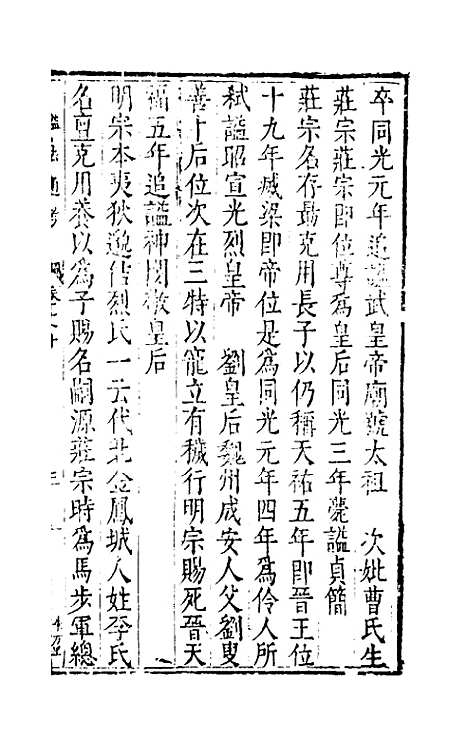 卒同光元年追謚武皇帝廟號太祖　次妣曹氏生
莊宗莊宗即位尊為皇后同光三年薨謚貞簡
莊宗名存勗克用長子以仍稱天祐五年即晉王位
十九年滅梁即帝位是為同光元年四年為伶人所
弒謚昭宣光烈皇帝　劉皇后魏州成安人父劉叟
善卜后位次在三特以寵立有穢行明宗賜死晉天
福五年追謚神閔敬皇后
明宗本夷狄邈佶烈氏一云代北金鳳城人姓李氏
名亶克用養以為子賜名嗣源莊宗時為馬步軍總
謚法通考